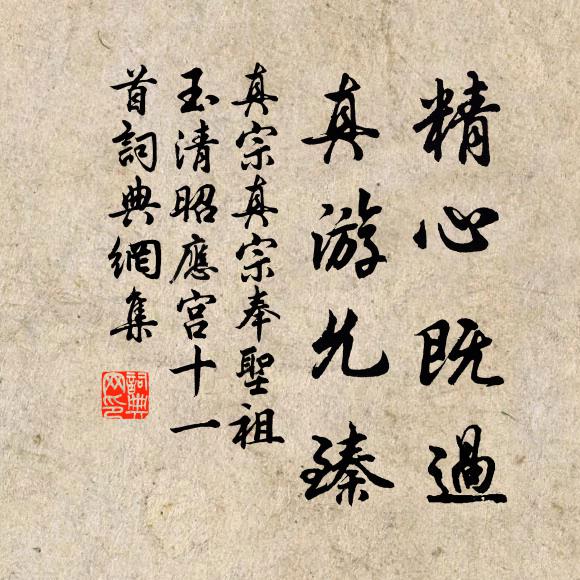 精心既過
真游允臻
真宗真宗奉聖祖
玉清昭應宮十一
首詞典網集
詞典網印